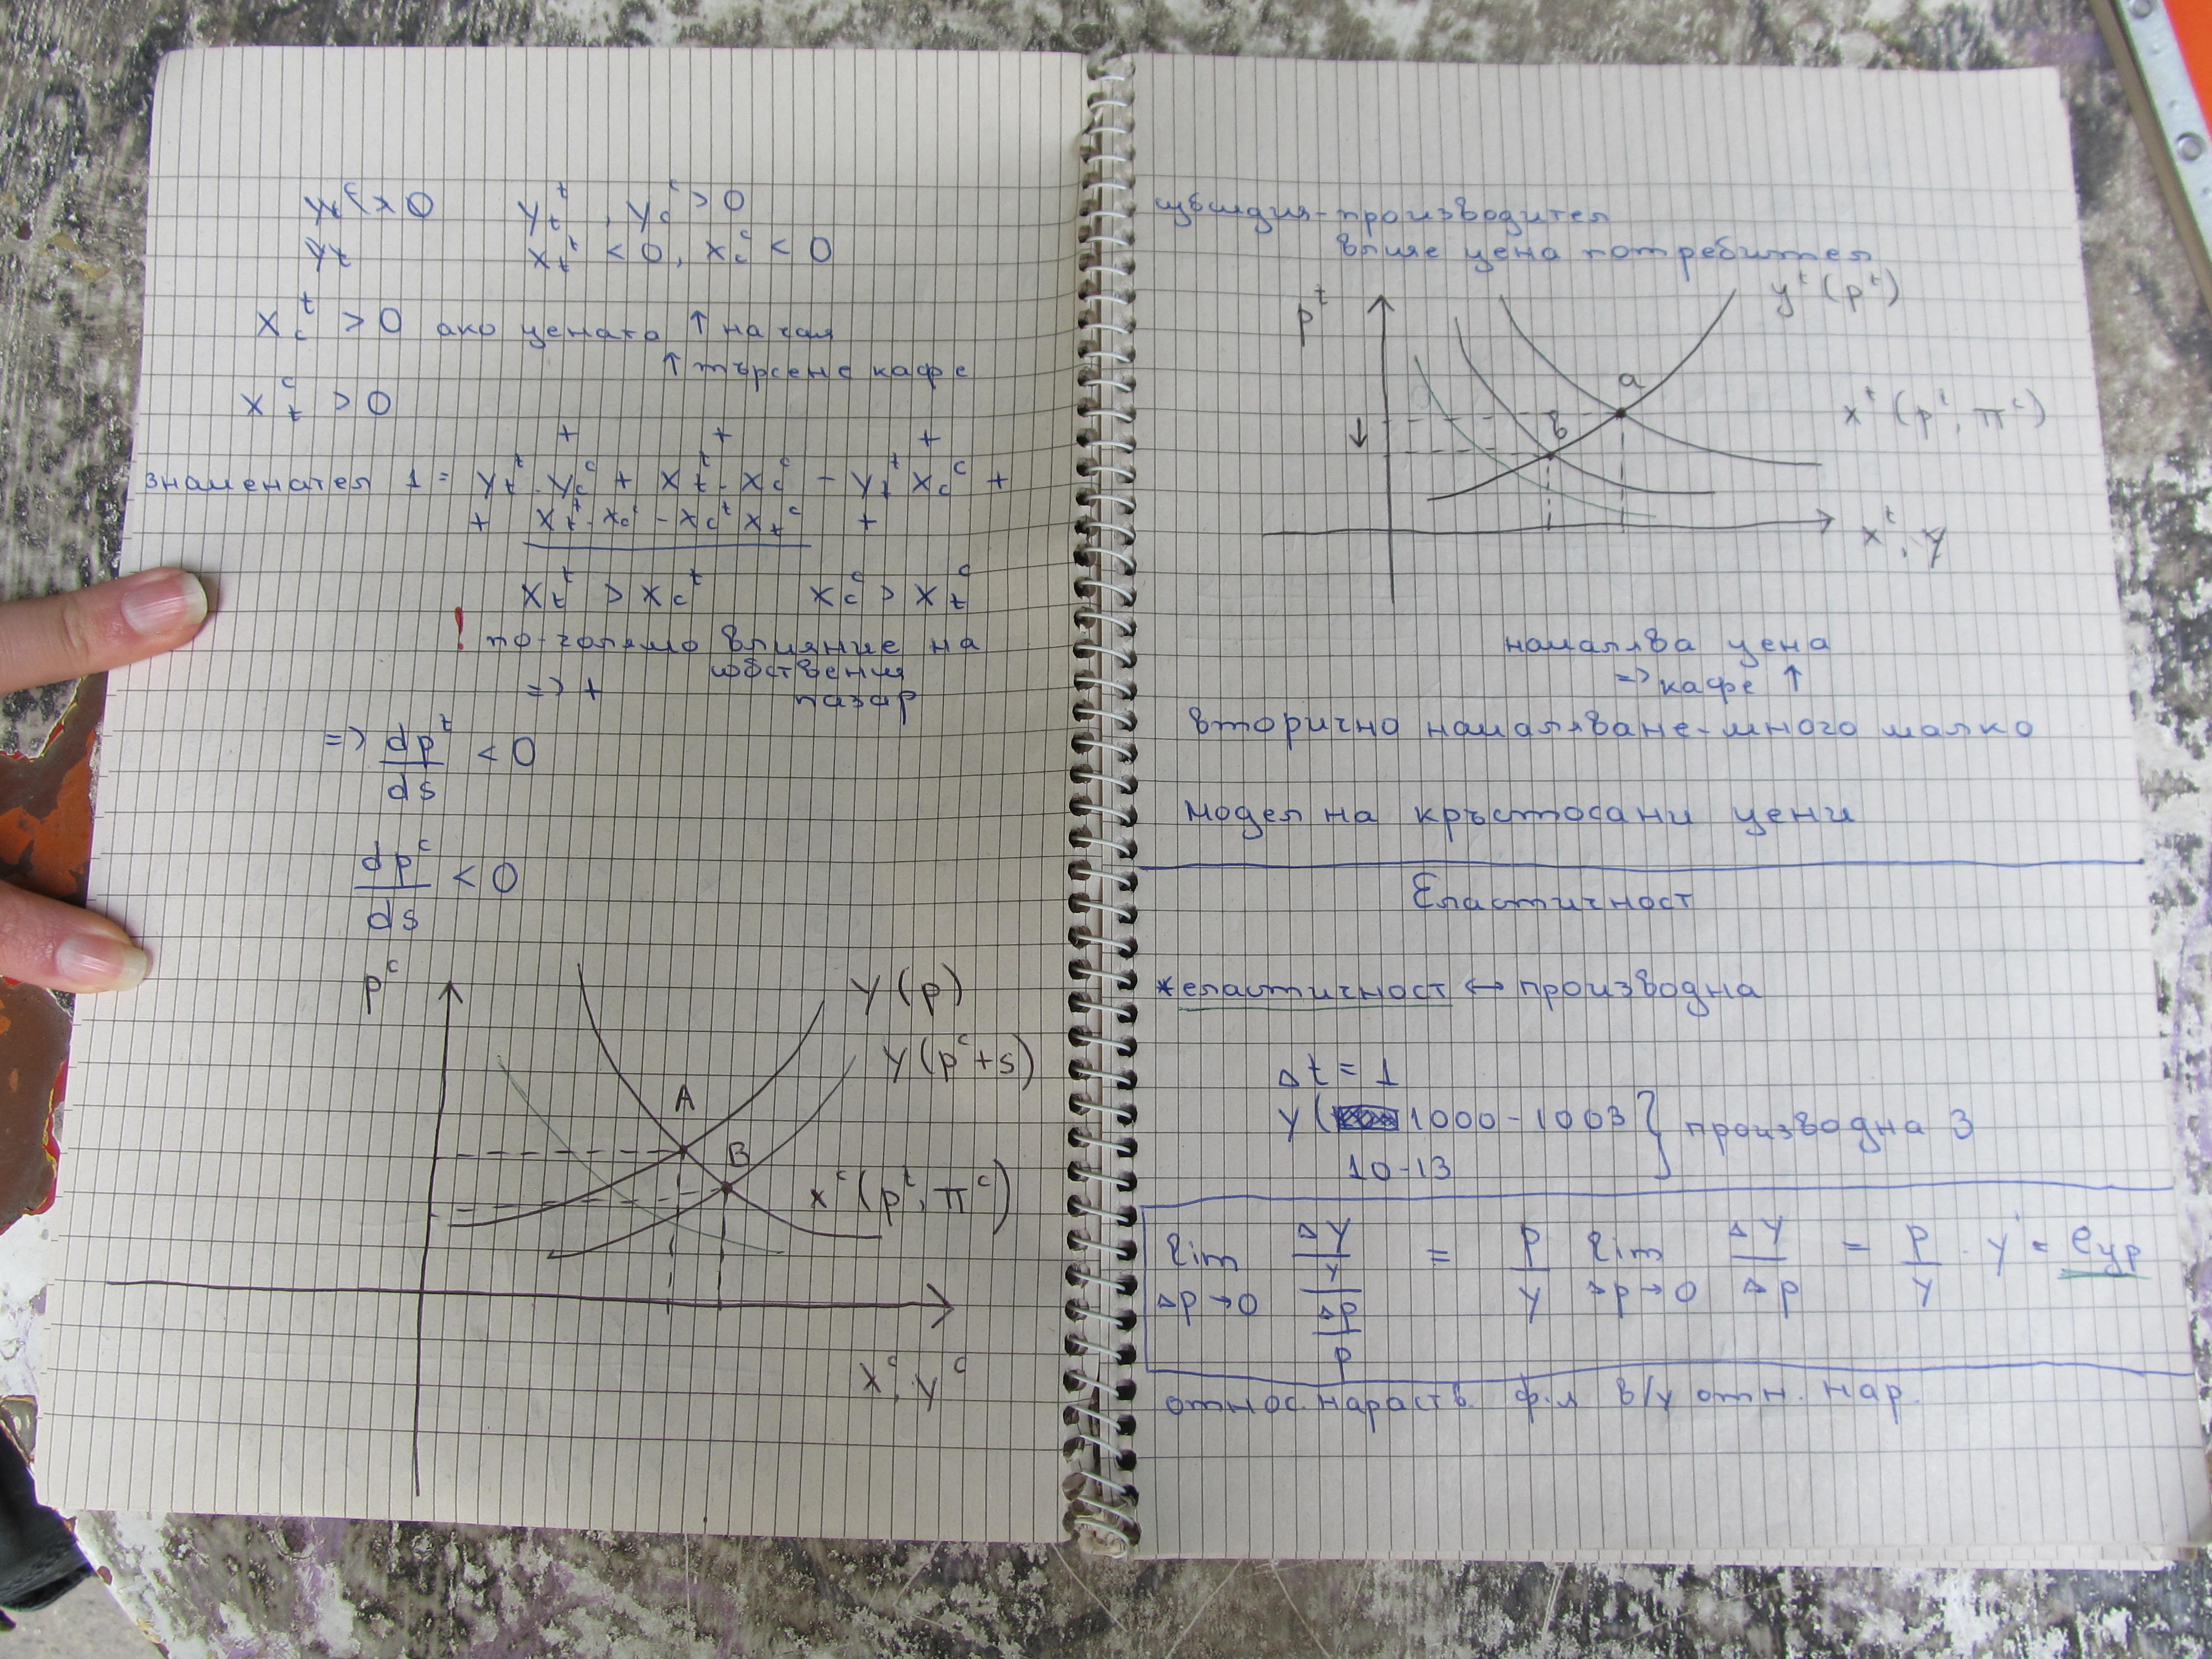 y_t^t , y_c^c > 0
y_t x_t^t < 0, x_c^c < 0
x_c^t > 0 ако цената ↑ на чая
↑ търсене кафе
x_t^c > 0
+ + +
знаменател 1 = y_t^t . y_c^c + x_t^t . x_c^c - y_t^t x_c^c +
+ x_t^t . x_c^c - x_c^t x_t^c +
x_t^t > x_c^t x_c^c > x_t^c
! по-голямо влияние на
собствения
=> + пазар
=> dp^t/ds < 0
dp^c/ds < 0
p^c
y(p)
y(p^c+s)
A
B
x^c(p^t, π^c)
x^c, y^c
субсидия-производител
влияе цена потребител
p^t
y^t(p^t)
a
x^t(p^t, π^c)
в
↓
x^t, y
намалява цена
=> кафе ↑
вторично намаляване-много малко
модел на кръстосани цени
Еластичност
*еластичност ↔ производна
Δt = 1
y( 1000-1003 } производна 3
10-13
lim Δp→0 (Δy/y)/(Δp/p) = p/y lim Δp→0 Δy/Δp = p/y . y' = e_yp
относ. нараств. ф.я в/у отн. нар.